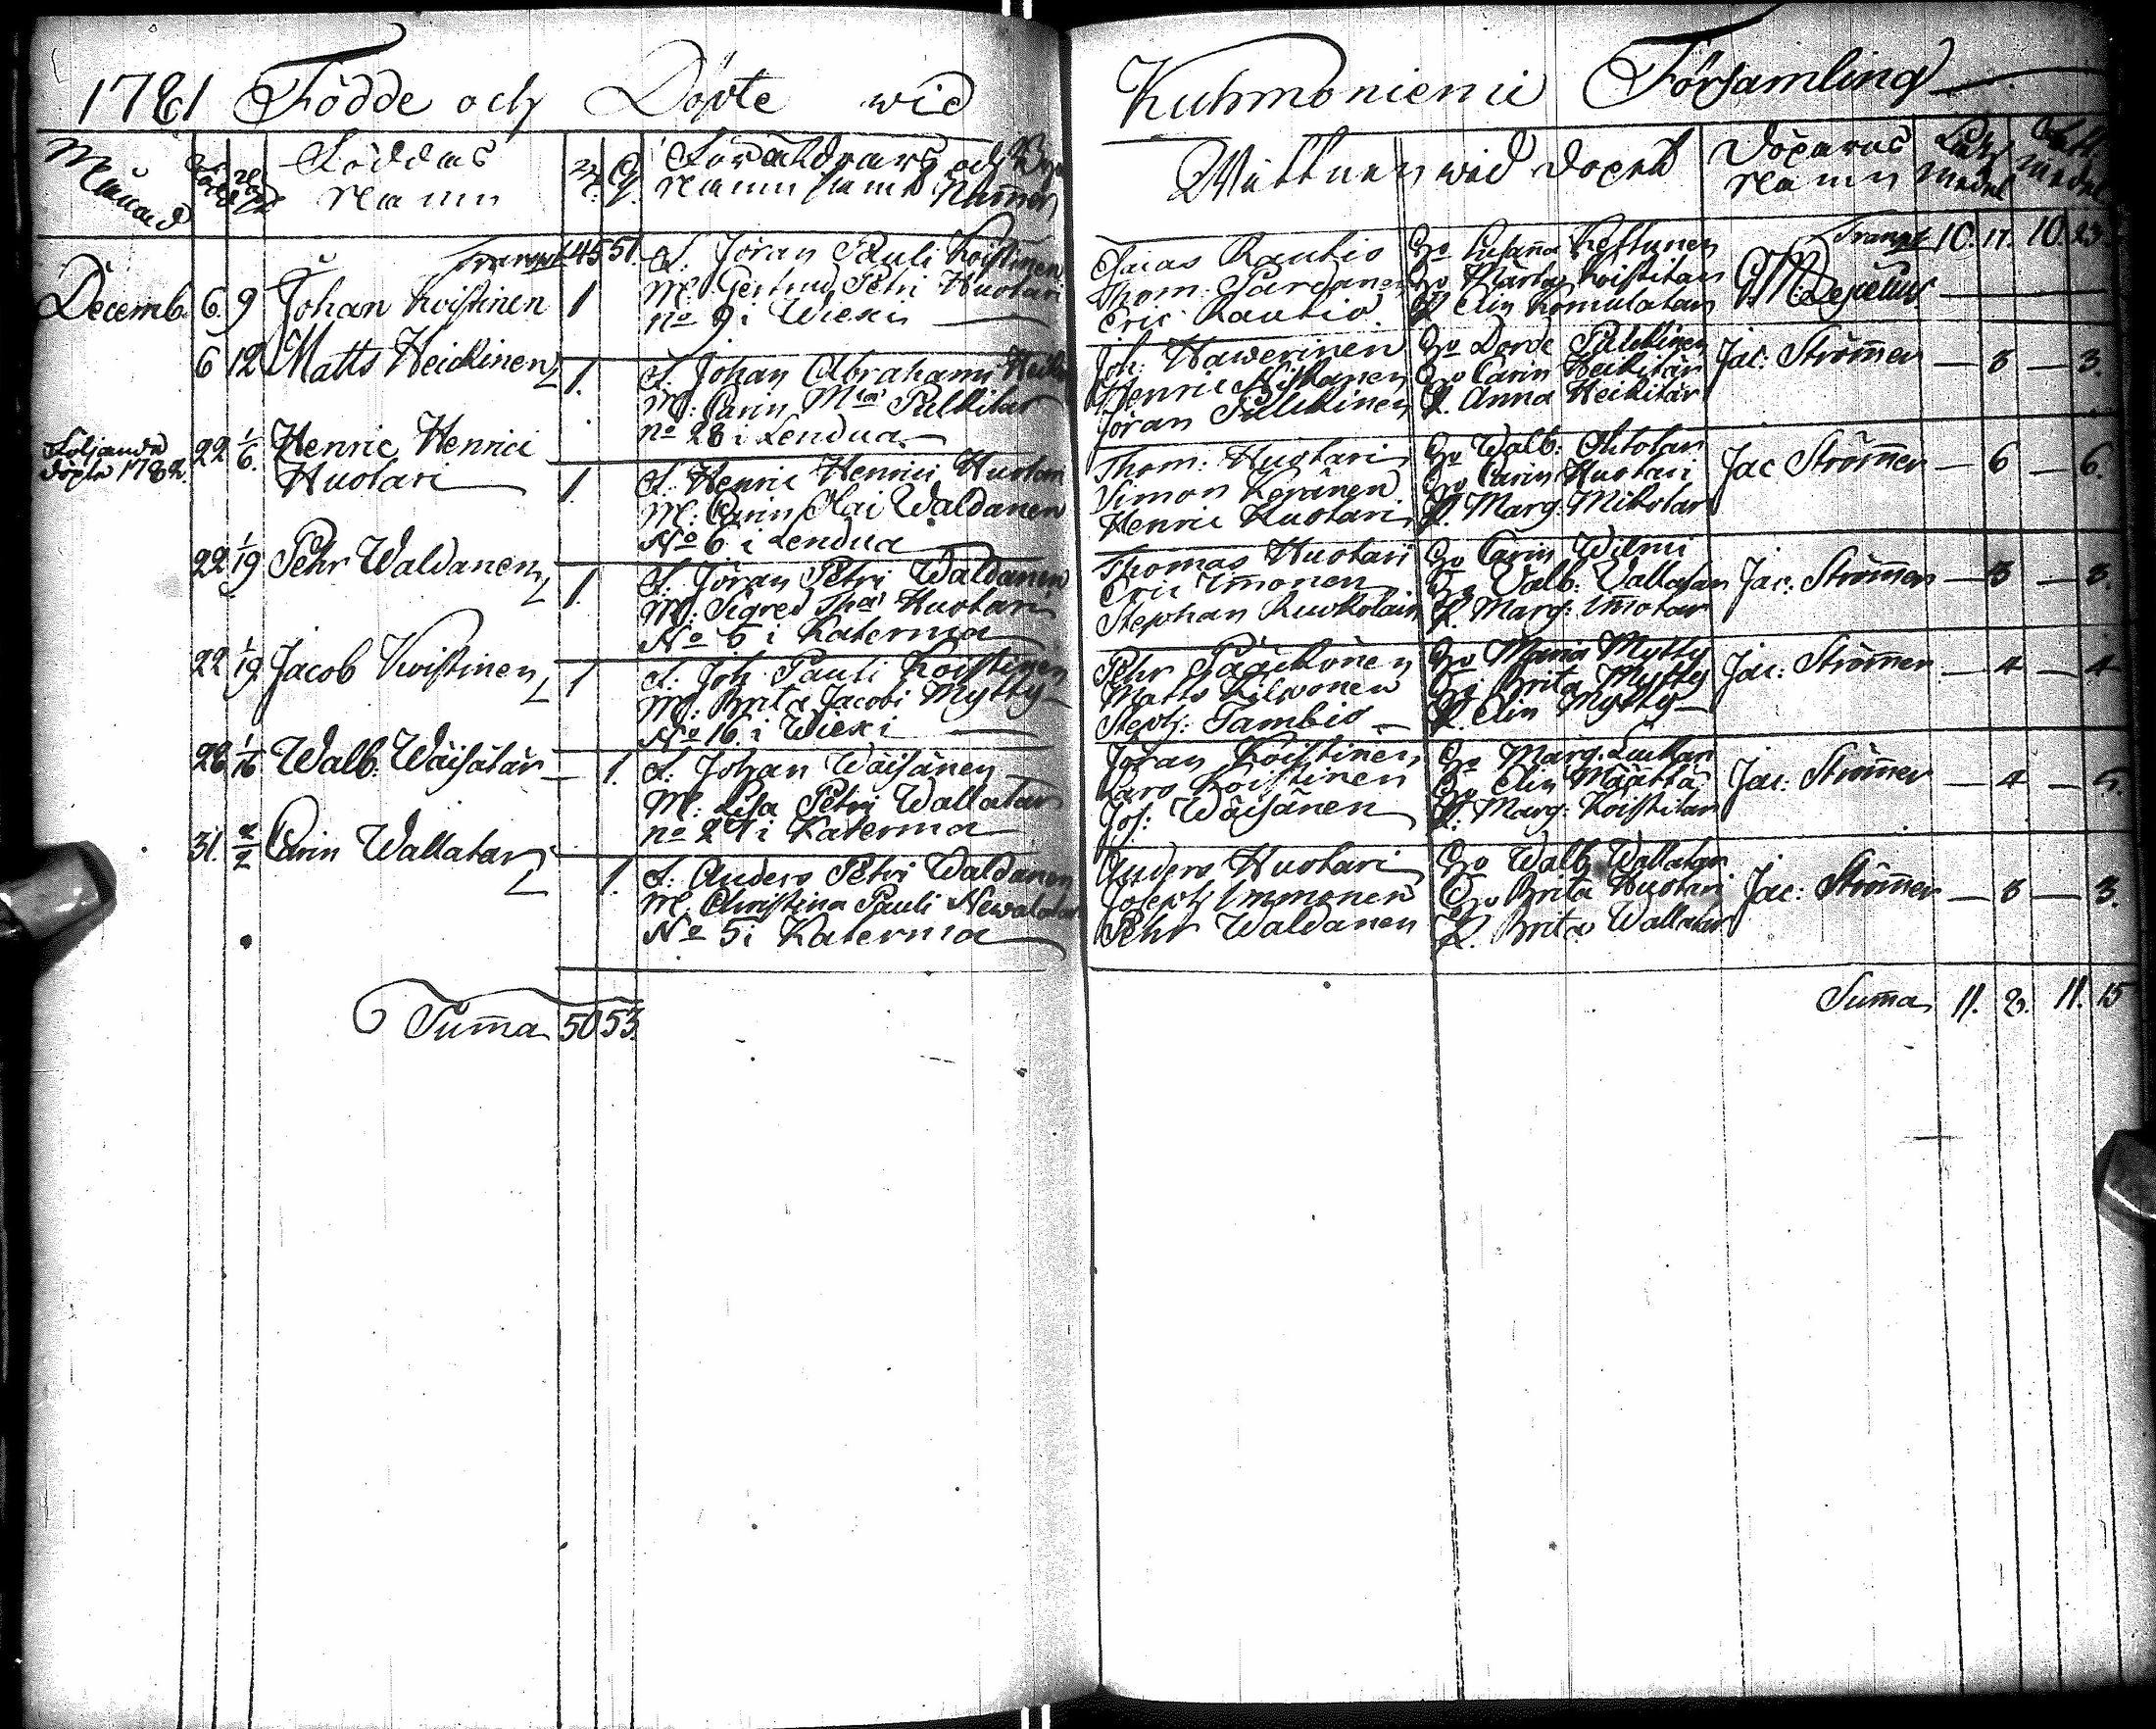 1781 Födde och Döpte wid Kuhmoniemi Församling
Månad
Födde
Döpte
Föddas Namn
M. Q.
Föräldrars och Byars Namn samt Numror
Wittnen wid Dopet
Döparens Namn
Transpt 45 51.
Transpt 10. 17. 10. 23
Decemb. 6. 9 Johan Koistinen 1
F. Jöran Pauli Koistinen
M: Gertrud Petri Huotari
no 9 i Wiexi
Esaias Rautio
Thom: Pardanen
Eric Rautio
Hu Susanna Keftunen
Hu Marta Koistitar
P. Elin Komulatar
6 12 Matts Heickinen 1.
F. Johan Abrahami Heikin
M: Carin Mtiæ Pulkitar
no 28 i Lendua
Joh: Hawerinen
Henric Niskanen
Jöran Pulckinen
Hu Dorde Pulckinen
Hu Carin Heikitär
P. Anna Heikitär
Jac: Strömer — 3 — 3.
Följande döpte 1782.
22 1/6. Henric Henrici
Huotari 1.
F. Henric Henrici Huotari
M: Carin Olai Waldanen
No 6 i Lendua
Thom: Huotari
Simon Keränen
Henric Huotari
Hu Walb: Ahtotar
Hu Carin Huotari
P. Marg: Mikotar
Jac Strömer — 6 — 6.
22 1/19 Pehr Waldanen 1.
F. Jöran Petri Waldanen
M: Sigred Thoæ Huotari
No 5 i Katerma
Thomas Huotari
Eric Imonen
Stephan Ruokolain
Hu Carin Wilmi
Hu Valb: Vallatar
P. Marg: Imotar
Jac: Strömer — 3 — 3.
22 1/19 Jacob Koistinen 1
F. Joh Pauli Koistinen
M: Brita Jacobi Mytty
No 16 i Wiexi
Pehr Pääckönen
Matts Kilponen
Steph: Tambio
Hu Maria Mytty
Hu Brita Mytty
P. Elin Mytty
Jac: Strömer — 4 — 4
26 1/16 Walb: Wäisätär 1.
F. Johan Wäisänen
M: Lisa Petri Wallatar
no 24 i Katerma
Jöran Koistinen
Lars Koistinen
Jos: Wäisänen
Hu Marg: Luttar
Hu Elin Määttä
P. Marg: Koistitar
Jac: Strömer — 4 — 5.
31. 2/2 Carin Wallatar 1.
F. Anders Petri Waldanen
M: Christina Pauli Newalatar
No 5 i Katerma
Anders Huotari
Joseph Immonen
Pehr Waldanen
Hu Walb Wallatar
Hu Brita Huotari
P. Brita Wallatar
Jac: Strömer — 3 — 3.
Suma 50 53.
Suma 11. 3. 11. 15